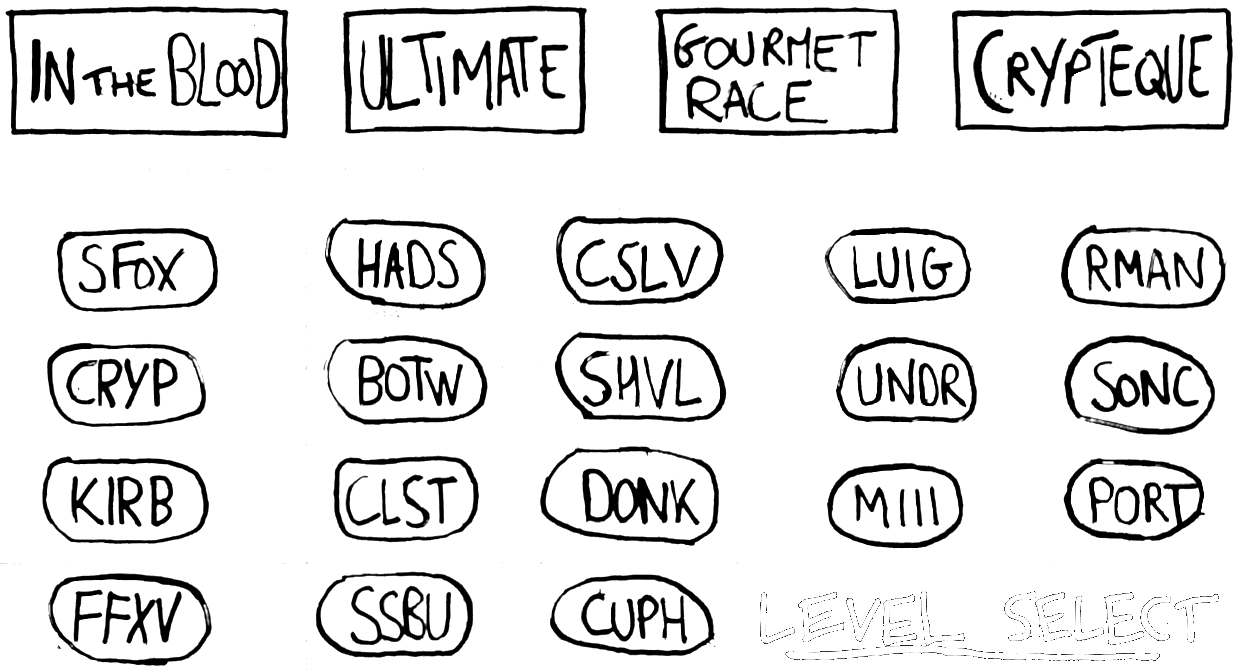 IN THE BLOOD
ULTIMATE
GOURMET
RACE
CRYPTEQUE
SFOX
HADS
CSLV
LUIG
RMAN
CRYP
BOTW
SHVL
UNDR
SONC
KIRB
CLST
DONK
MIII
PORT
FFXV
SSBU
CUPH
LEVEL SELECT